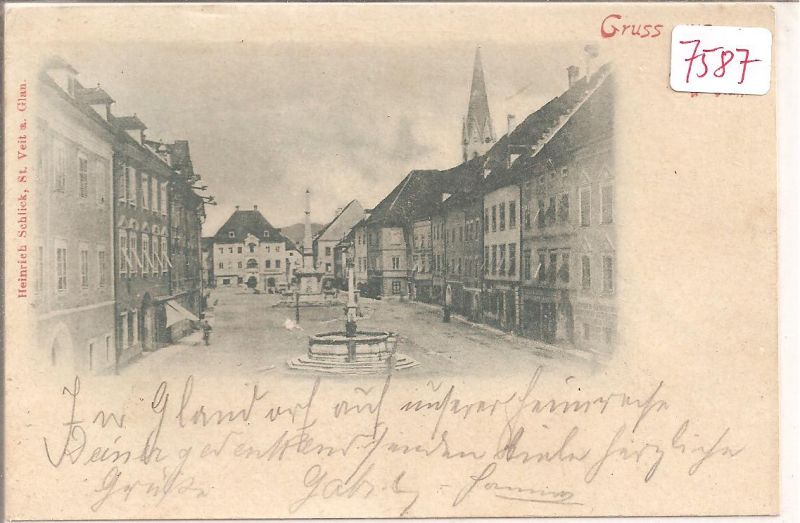 Gruss
7587
Heinrich Schlick, St. Veit a. Glan.
In Glandorf auf unserer Heimreise
Deiner gedenkend senden Viele herzliche
Grüße